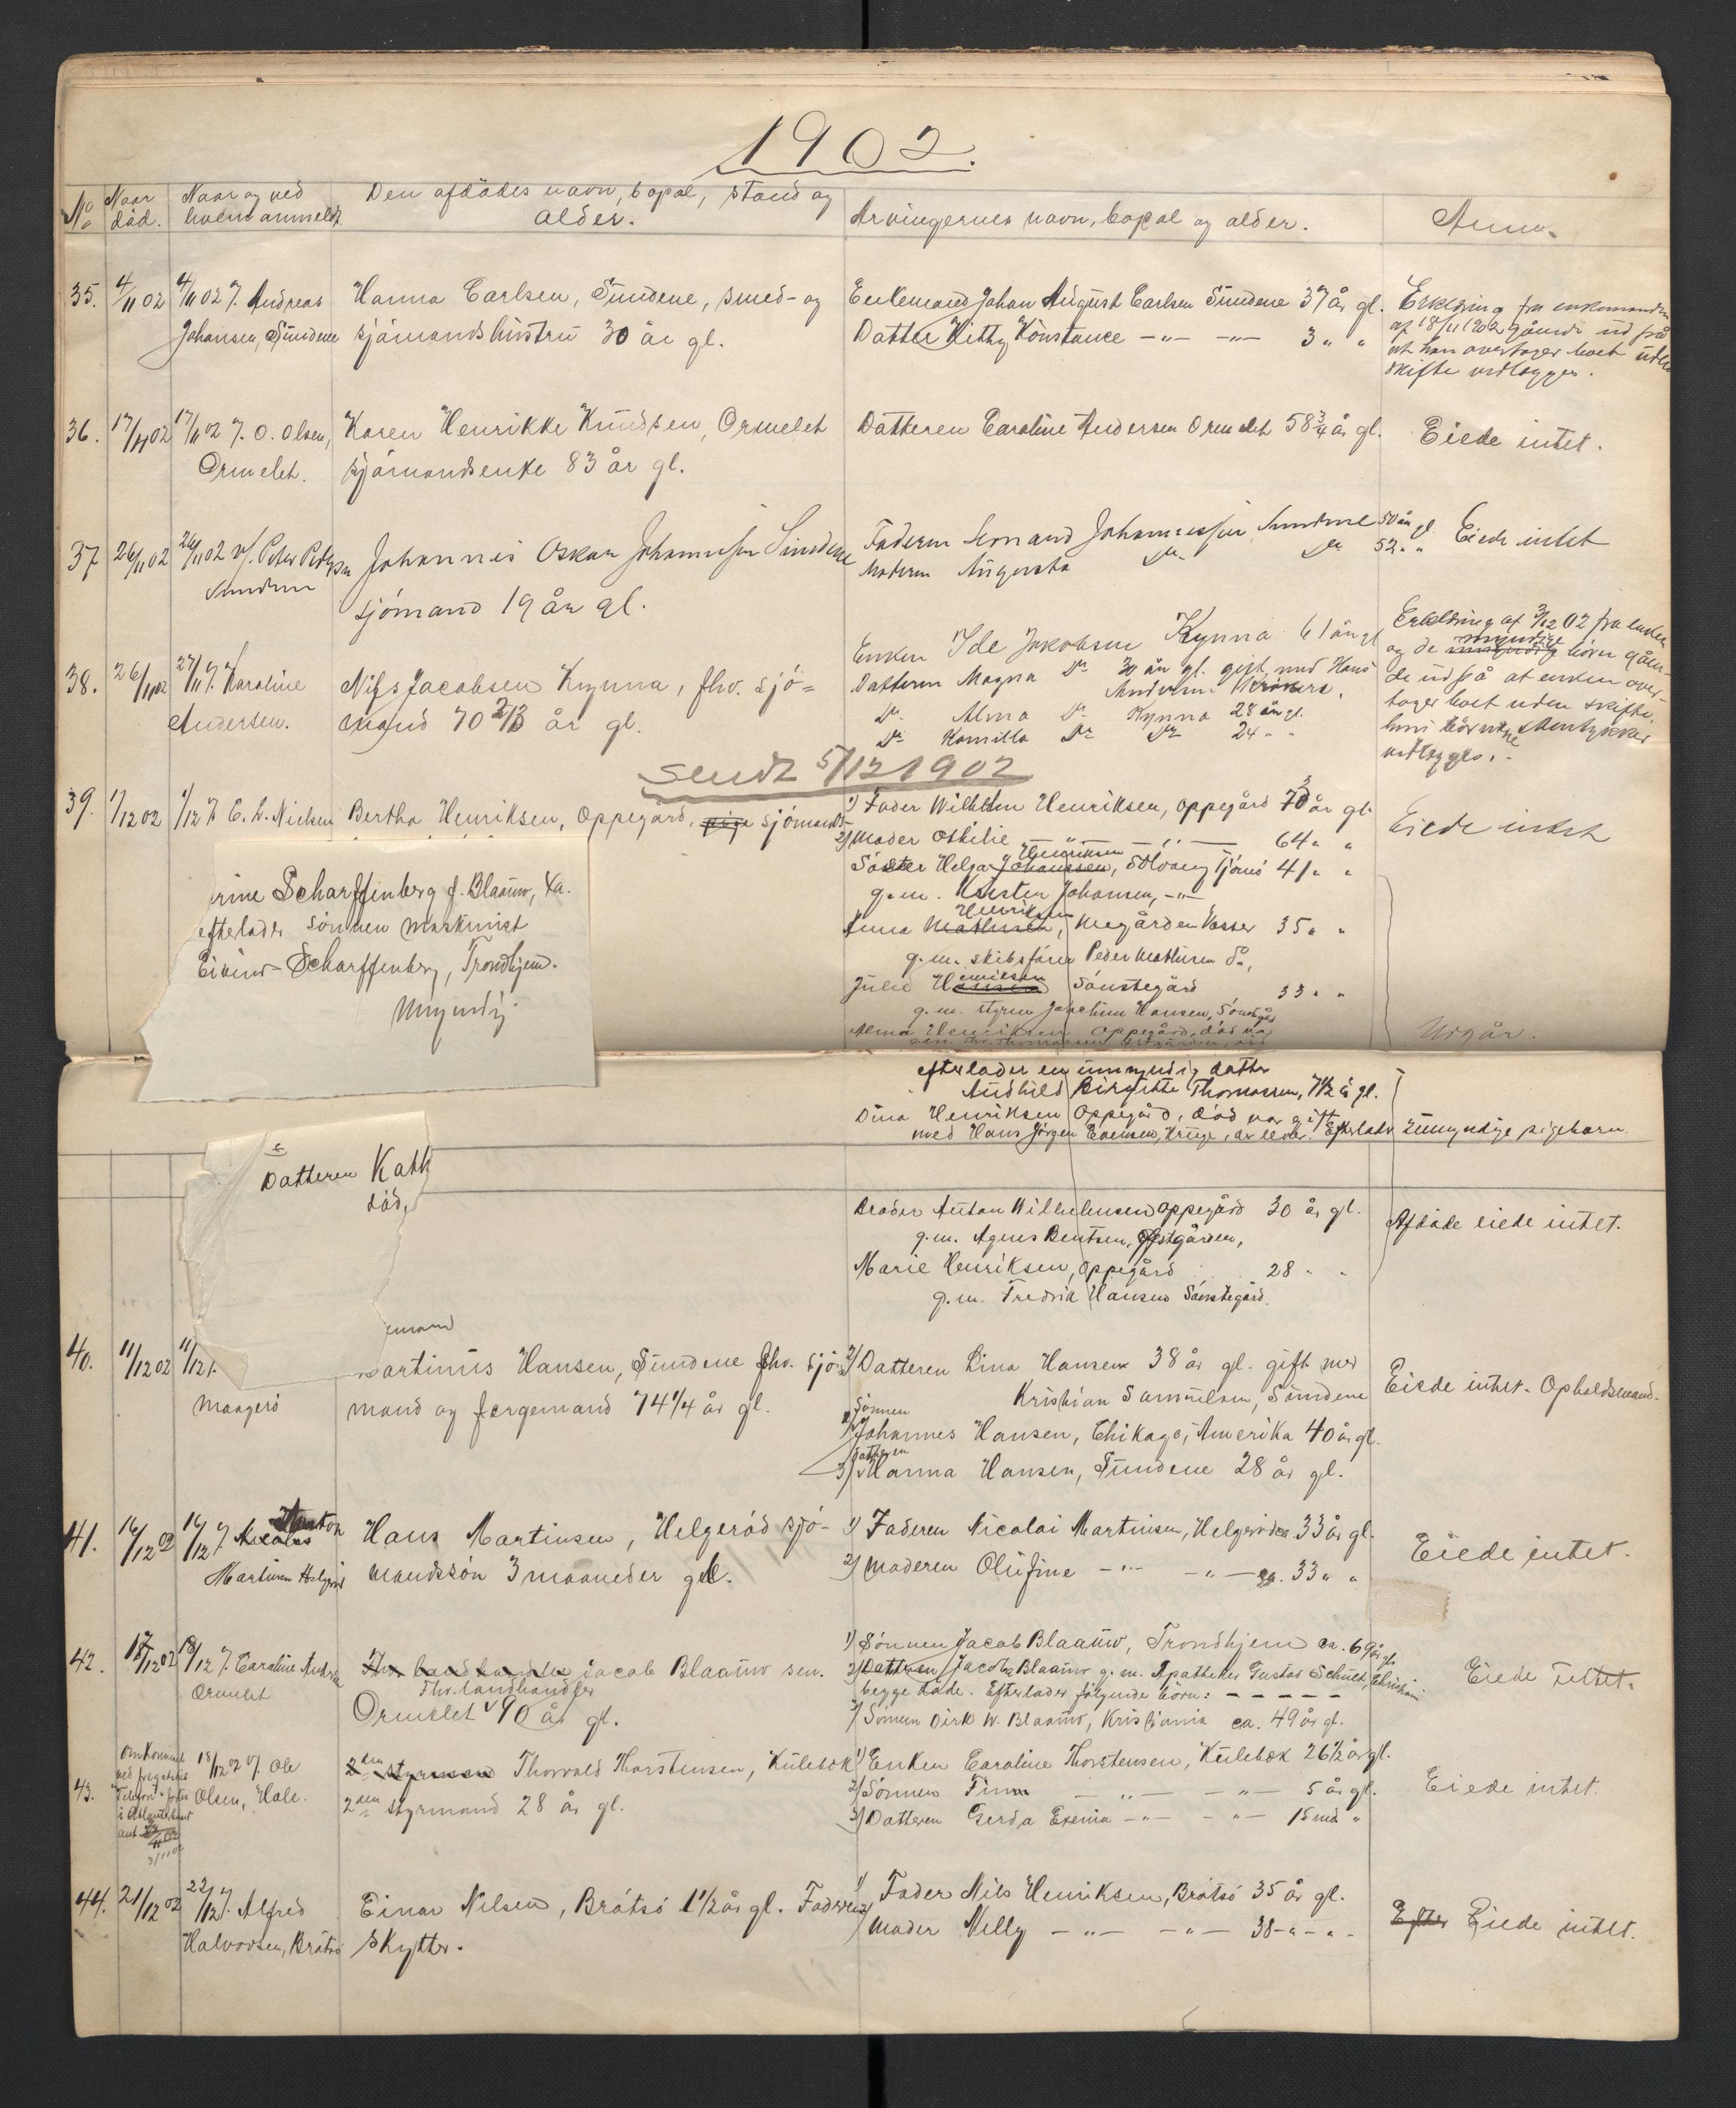 1902.
No
Naar död.
Naar og ved hvem anmeldt
Den afdödes navn, bopæl, stand og alder.
Arvingernes navn, bopæl og alder.
Anm.
35. 4/11 02 4/11 02 f. Andreas Johansen, Sundene
Hanna Carlsen, Sundene, smed- og
sjömandshustru 30 år gl.
Enkemand Johan August Carlsen Sundene 37 år gl.
Datter Kitty Konstance -"- -"- 3 " "
Erklæring fra enkemanden
af 18/11 1902 gående ud på
at han overtager boet uden
skifte vedlægges.
36. 17/11 02 17/11 02 f. O. Olsen, Ormelet.
Karen Henrikke Knudsen, Ormelet
sjömandsenke 83 år gl.
Datteren Caroline Andersen Ormelet 58 3/4 år gl.
Eiede intet.
37 26/11 02 26/11 02 v/. Peter Sundene
Johannes Oskar Johannesen Sundene
sjömand 19 år gl.
Faderen Johannessen Sundene 50 år gl
Moderen Augusta Do Do 52 " "
Eiede intet
38. 26/11 02 27/11 f. Karoline Andersen.
Nils Jacobsen Kynna, fhv. sjö=
mand 70 2/3 år gl.
Enken Ide Jakobsen Kynna 61 år gl
Datteren Magna Do 30 år gl. gift med Hans
Andersen
Do Alma Do Kynna 28 år gl.
Do Kamilla Do Do 24 " "
Erklæring af 3/12 02 fra enken
og de myndige börn gåen-
de ud på at enken over-
tager boet uden skifte,
vedlægges.
Sendt 5/12 1902
39. 1/12 02 1/12 f. E. L. Nielsen
Bertha Henriksen, Oppegård, pige sjömands
1) Fader Wilhelm Henriksen, Oppegård 70 år gl.
2) Moder Othilie -"- -"- 64 " "
Söster Helga Johansen Henriksen, Solvang Tjömö 41 " "
g.m. Karsten Johansen, -"-
Anna Mathisen Henriksen, Megården Vasser 35 " "
g.m. skibsförer Peder Mathisen do,
Julie Hansen Henriksen Sönstegård 33 " "
g.m. styrm. Joachim Hansen, Sönstegård
Alma Henriksen Oppegård, död var
Eiede intet
Utgår.
efterlader en umyndig datter
Audhild Birgitte Thomassen, 7 1/2 år gl.
Dina Henriksen Oppegård, död var gift
med Hans Jörgen Evensen, Kruge, der lever. Efterlader 2 umyndige pigebarn.
rine Scharffenberg f. Blaauw, ka.
efterlader sönnen maskinist
Eivind Scharffenberg, Trondhjem.
Umyndig
Datteren Kath
död,
Broder Anton Wilhelmsen Oppegård 30 år gl.
g.m. Agnes Bentsen, Østgården,
Marie Henriksen, Oppegård 28 " "
g.m. Fredrik Hansen Sönstegård.
Afdöde eiede intet.
40. 11/12 02 11/12 f. Maagerö
Martinus Hansen, Sundene fhv. sjö-
mand og færgemand 74 1/4 år gl.
2) Datteren Lina Hansen 38 år gl. gift med
Kristian Samuelsen, Sundene
1) Sönnen Johannes Hansen, Chikago, Amerika 40 år gl.
3) datteren Hanna Hansen, Sundene 28 år gl.
Eiede intet. Opholdsmand.
41. 16/12 02 16/12 f. Nicolai Anton Martinsen Helgeröd
Hans Martinsen, Helgeröd sjö-
mandssön 3 maaneder gl.
1) Faderen Nicolai Martinsen, Helgeröd ca 33 år gl.
2) Moderen Olufine -"- -"- ca. 33 " "
Eiede intet.
42. 18/12 02 18/12 f. Caroline Andersen Ormelet
Fhv. landhandler Jacob Blaauw sen.
Fhv. landhandler
Ormelet 90 år gl.
1) Sönnen Jacob Blaauw, Trondhjem ca. 69 år gl.
2) Datteren Jacoba Blaauw g.m. Apotheker Gustav Schult, Christiania
begge döde. Efterlader fölgende börn: - - - - -
3) Sönnen Dirk W. Blaauw, Kristiania ca. 49 år gl.
Eiede intet.
43. Omkommet ved i Atlanterhavet 3/11 02
18/12 02 v/. Ole Olsen, Hole.
2den styrmand Thorvald Thorstensen, Kulebæk
2den styrmand 28 år gl.
1) Enken Caroline Thorstensen, Kulebæk 26 1/2 år gl.
2) Sönnen Finn -"- -"- 5 år gl.
3) Datteren Gerda Exenia -"- -"- 15 md "
Eiede intet.
44. 21/12 02 22/12 f. Alfred Halvorsen, Bråtsö
Einar Nilsen, Bråtsö 1 1/2 år gl. Faderen
skytter.
1) Fader Nils Henriksen, Bråtsö 35 år gl.
2) Moder Nelly -"- -"- 38 -"-"-
Efter Eiede intet.